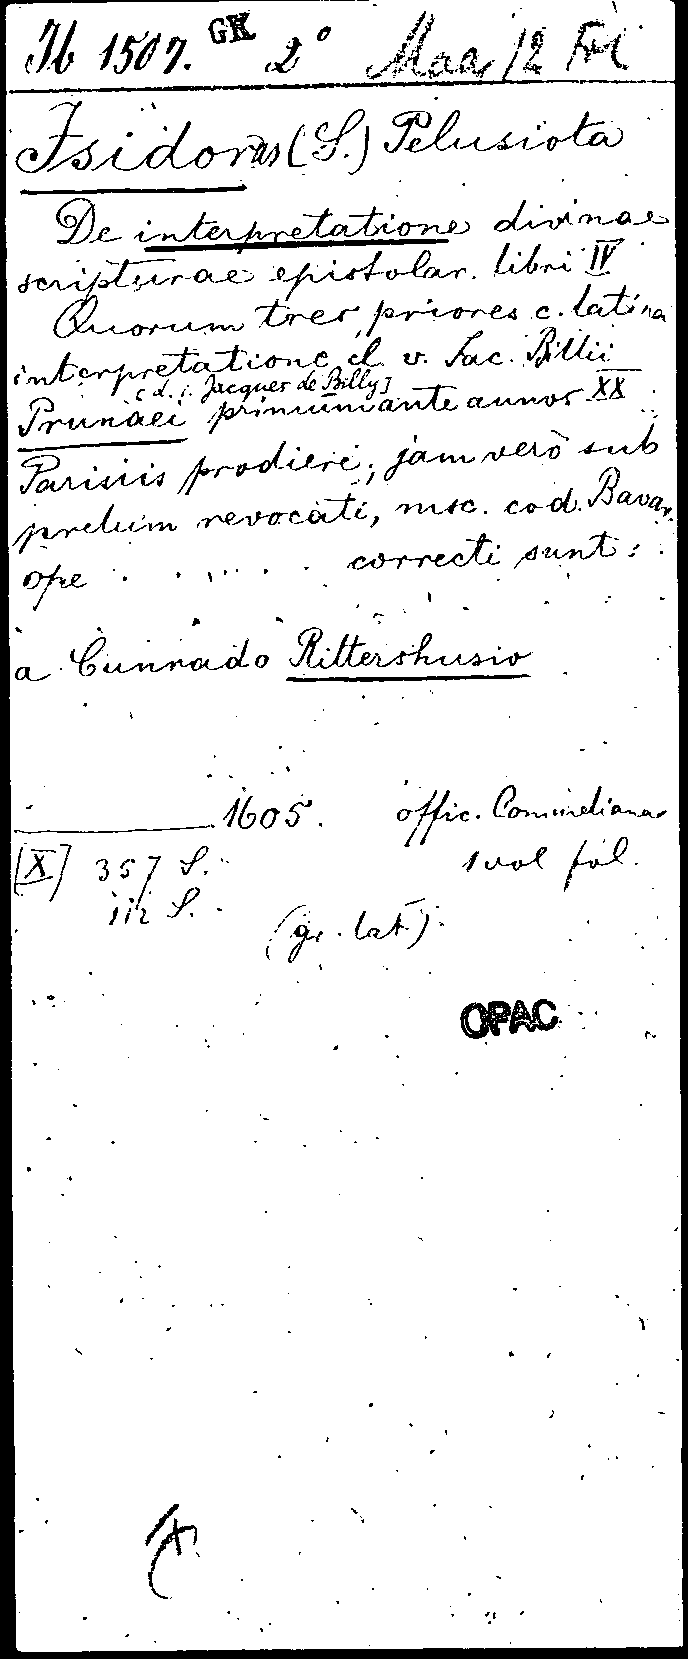 Ib 1507. GK 2° Maa 12 Fol
Isidorus (S.) Pelusiota
De interpretatione divinae
scripturae epistolar. libri IV
Quorum tres priores c. latina
interpretatione cl. v. Jac. Billii
[d. i. Jacques de Billy]
Prunaei primum ante annos XX
Parisiis prodiere; jam vero sub
prelum revocati, msc. cod. Bavar.
ope . . . . . . correcti sunt:
a Cunrado Rittershusio
1605. offic. Commeliana
[X] 357 S. 1 vol fol.
112 S.
(gr. lat.)
OPAC